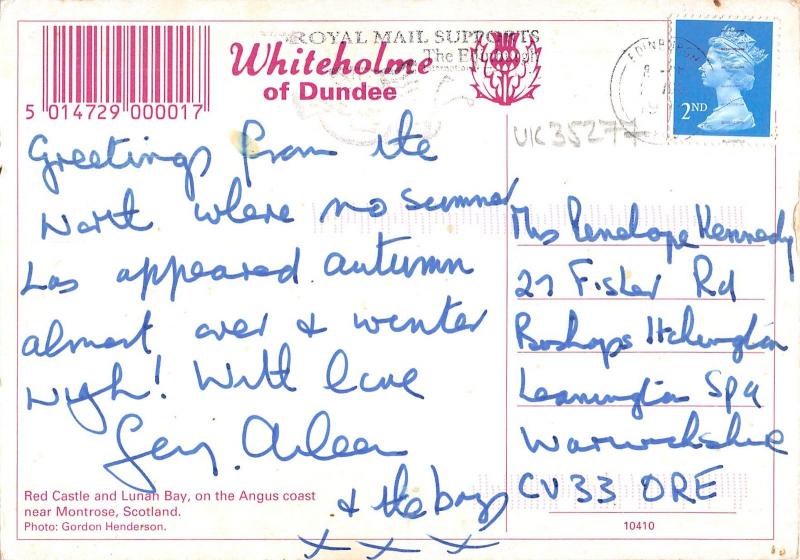 ROYAL MAIL SUPPORTS
The Edinburgh
Whiteholme
of Dundee
5 014729 000017
EDINBURGH
2ND
UK35277
Greetings from the
North where no summer
has appeared autumn
almost over & winter
nigh! With love
Gerry. Arleen
& the boys
x x x
Mrs Penelope Kennedy
27 Fisher Rd
Bishops Itchington
Leamington Spa
Warwickshire
CV33 ORE
Red Castle and Lunan Bay, on the Angus coast
near Montrose, Scotland.
Photo: Gordon Henderson.
10410